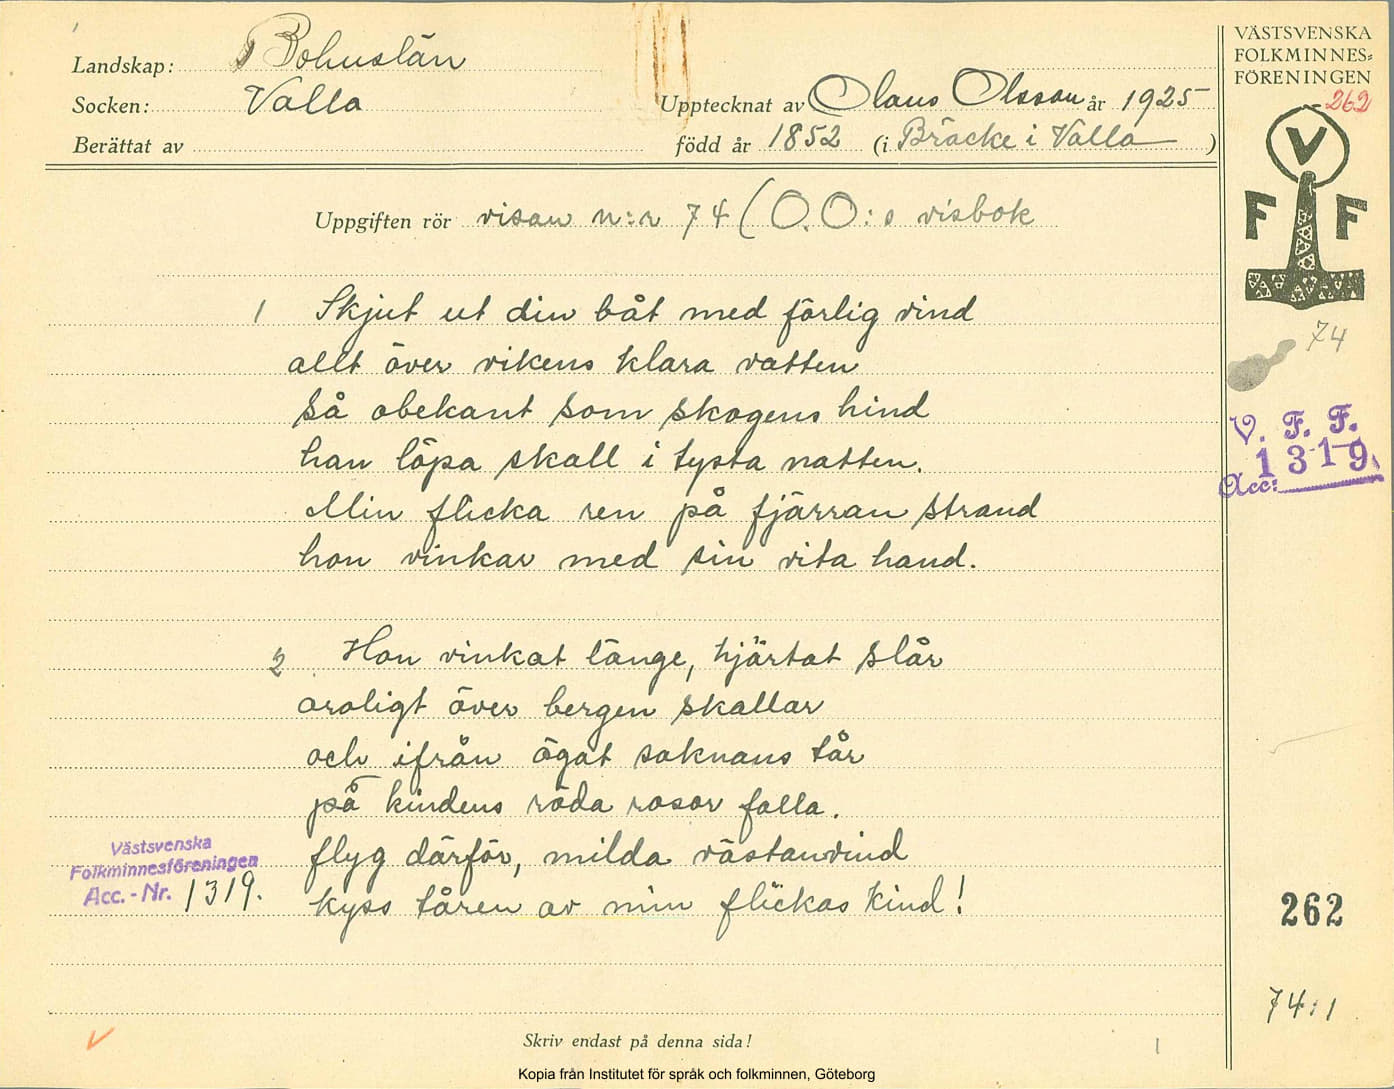 Landskap: Bohuslän
Socken: Valla
Upptecknat av Olaus Olsson år 1925
Berättat av
född år 1852 (i Bräcke i Valla )
VÄSTSVENSKA
FOLKMINNES-
FÖRENINGEN
262
V
F F
Uppgiften rör visan n:r 74 (O.O:s visbok
1 Skjut ut din båt med förlig vind
allt över vikens klara vatten
så obekant som skogens hind
han löpa skall i tysta natten.
Min flicka ren på fjärran strand
hon vinkar med sin vita hand.
2 Hon vinkat länge, hjärtat slår
oroligt över bergen skallar
och ifrån ögat saknans tår
på kindens röda rosor falla.
flyg därför, milda västanvind
kyss tåren av min flickas kind!
74
V. F. F.
Acc: 1319
Västsvenska
Folkminnesföreningen
Acc.-Nr. 1319.
262
74:1
Skriv endast på denna sida!
1
Kopia från Institutet för språk och folkminnen, Göteborg